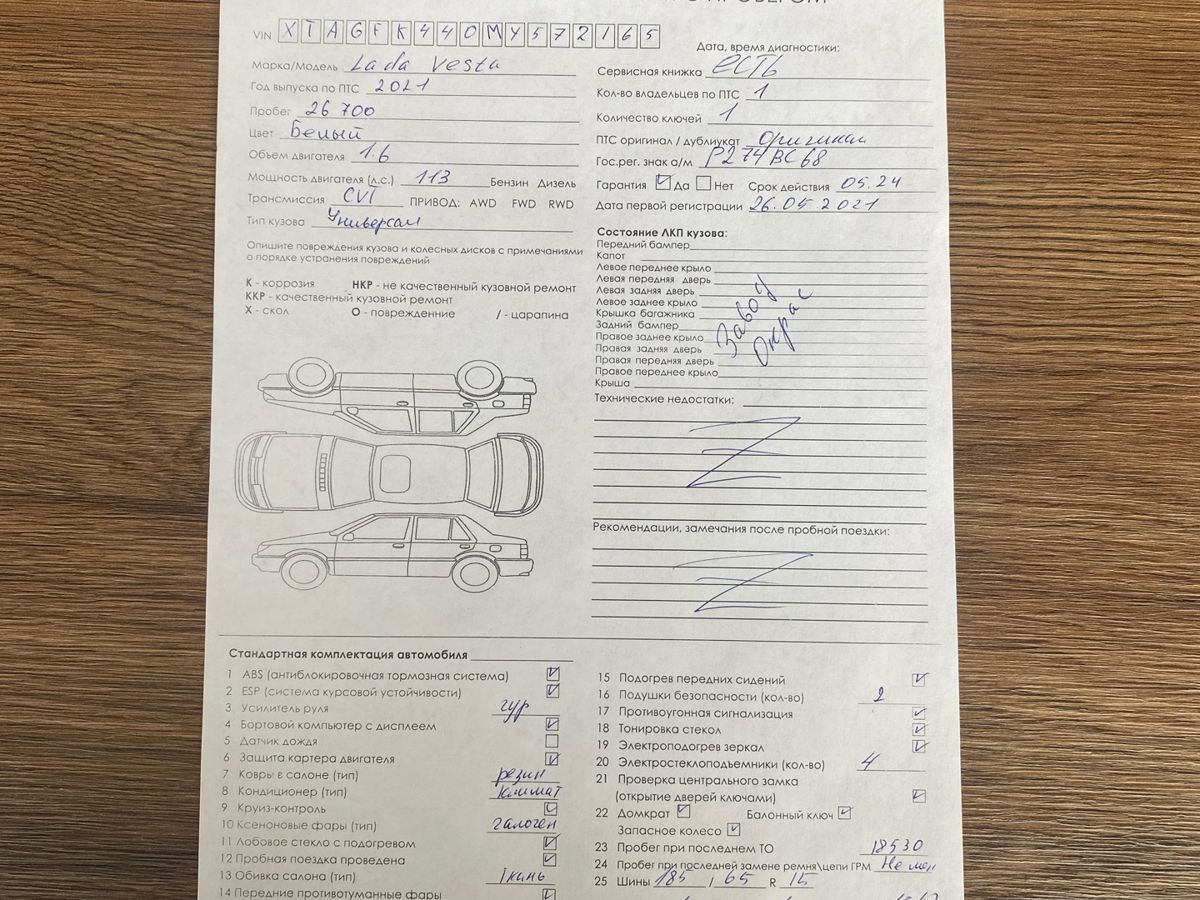 С ПРОБЕГОМ
VIN XTAGFK440MY572165
Марка/Модель Lada Vesta
Год выпуска по ПТС 2021
Пробег 26 700
Цвет Белый
Объем двигателя 1.6
Мощность двигателя (л.с.) 113 Бензин Дизель
Трансмиссия CVT ПРИВОД: AWD FWD RWD
Тип кузова Универсал
Опишите повреждения кузова и колесных дисков с примечаниями
о порядке устранения повреждений
К - коррозия НКР - не качественный кузовной ремонт
ККР - качественный кузовной ремонт
Х - скол О - повреждение / - царапина
Дата, время диагностики:
Сервисная книжка есть
Кол-во владельцев по ПТС 1
Количество ключей 1
ПТС оригинал / дубликат Оригинал
Гос.рег. знак а/м Р274ВС68
Гарантия Да Нет Срок действия 05.24
Дата первой регистрации 26.05.2021
Состояние ЛКП кузова:
Передний бампер
Капот
Левое переднее крыло
Левая передняя дверь
Левая задняя дверь
Левое заднее крыло
Крышка багажника
Задний бампер
Правое заднее крыло
Правая задняя дверь
Правая передняя дверь
Правое переднее крыло
Крыша
Завод
Окрас
Технические недостатки:
Z
Рекомендации, замечания после пробной поездки:
Z
Стандартная комплектация автомобиля
1 ABS (антиблокировочная тормозная система)
2 ESP (система курсовой устойчивости)
3 Усилитель руля гур
4 Бортовой компьютер с дисплеем
5 Датчик дождя
6 Защита картера двигателя
7 Ковры в салоне (тип) резин
8 Кондиционер (тип) климат
9 Круиз-контроль
10 Ксеноновые фары (тип) галоген
11 Лобовое стекло с подогревом
12 Пробная поездка проведена
13 Обивка салона (тип) ткань
14 Передние противотуманные фары
15 Подогрев передних сидений
16 Подушки безопасности (кол-во) 2
17 Противоугонная сигнализация
18 Тонировка стекол
19 Электроподогрев зеркал
20 Электростеклоподъемники (кол-во) 4
21 Проверка центрального замка
(открытие дверей ключами)
22 Домкрат Балонный ключ
Запасное колесо
23 Пробег при последнем ТО 18530
24 Пробег при последней замене ремня\цепи ГРМ Не мен
25 Шины 185 / 65 R 15